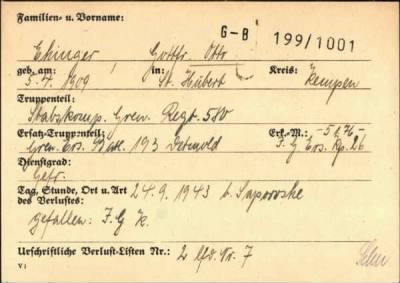 Familien- u. Vorname:
G-B 199/1001
Ehinger Gottfr. Otto
geb. am: in: Kreis:
5.4.1909 St. Hubert Kempen
Truppenteil:
Stabskomp. Gren. Regt.
Ersatz-Truppenteil: Erk.-M.: -5176-
Gren. Ers. Batl. 193 Detmold J. G. Ers. Kp. 26
Dienstgrad:
Gefr.
Tag, Stunde, Ort u. Art 24.9.1943 b. Saporoshe
des Verlustes:
gefallen: J.G. K.
Urschriftliche Verlust-Listen Nr.: 2 lfd. Nr. 7
V1